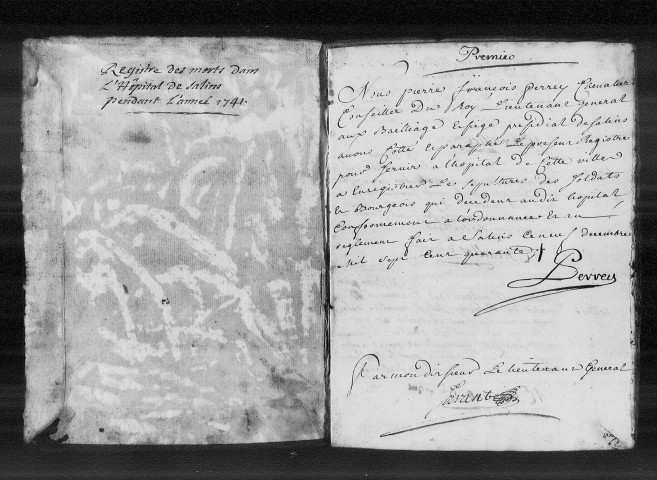 Registre des morts dans
L'Hôpital de Salins
pendant l'année 1741.
Premier
Nous pierre françois perrey Chevallier
Conseiller Du Roy Lieutenant General
aux Bailliage et siege presidial de Salins
avons Cotté et paraphé Le present Registre
pour servir a l'hopital de Cette ville
a Enregistrer Les sepultures des soldats
Et Bourgeois qui decedent audit hopital
Conformement a lordonnance Et au
reglement fait a Salins Ce neuf decembre
Mil sept cent quarante
Perrey
Par mondit sieur Le Lieutenant General